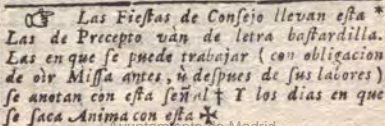 ☞ Las Fieſtas de Conſejo llevan eſta *
Las de Precepto ván de letra baſtardilla.
Las en que ſe puede trabajar (con obligacion
de oir Miſſa antes, ù deſpues de ſus labores)
ſe anotan con eſta ſeñal † Y los dias en que
ſe ſaca Anima con eſta ✠
Ayuntamiento de Madrid